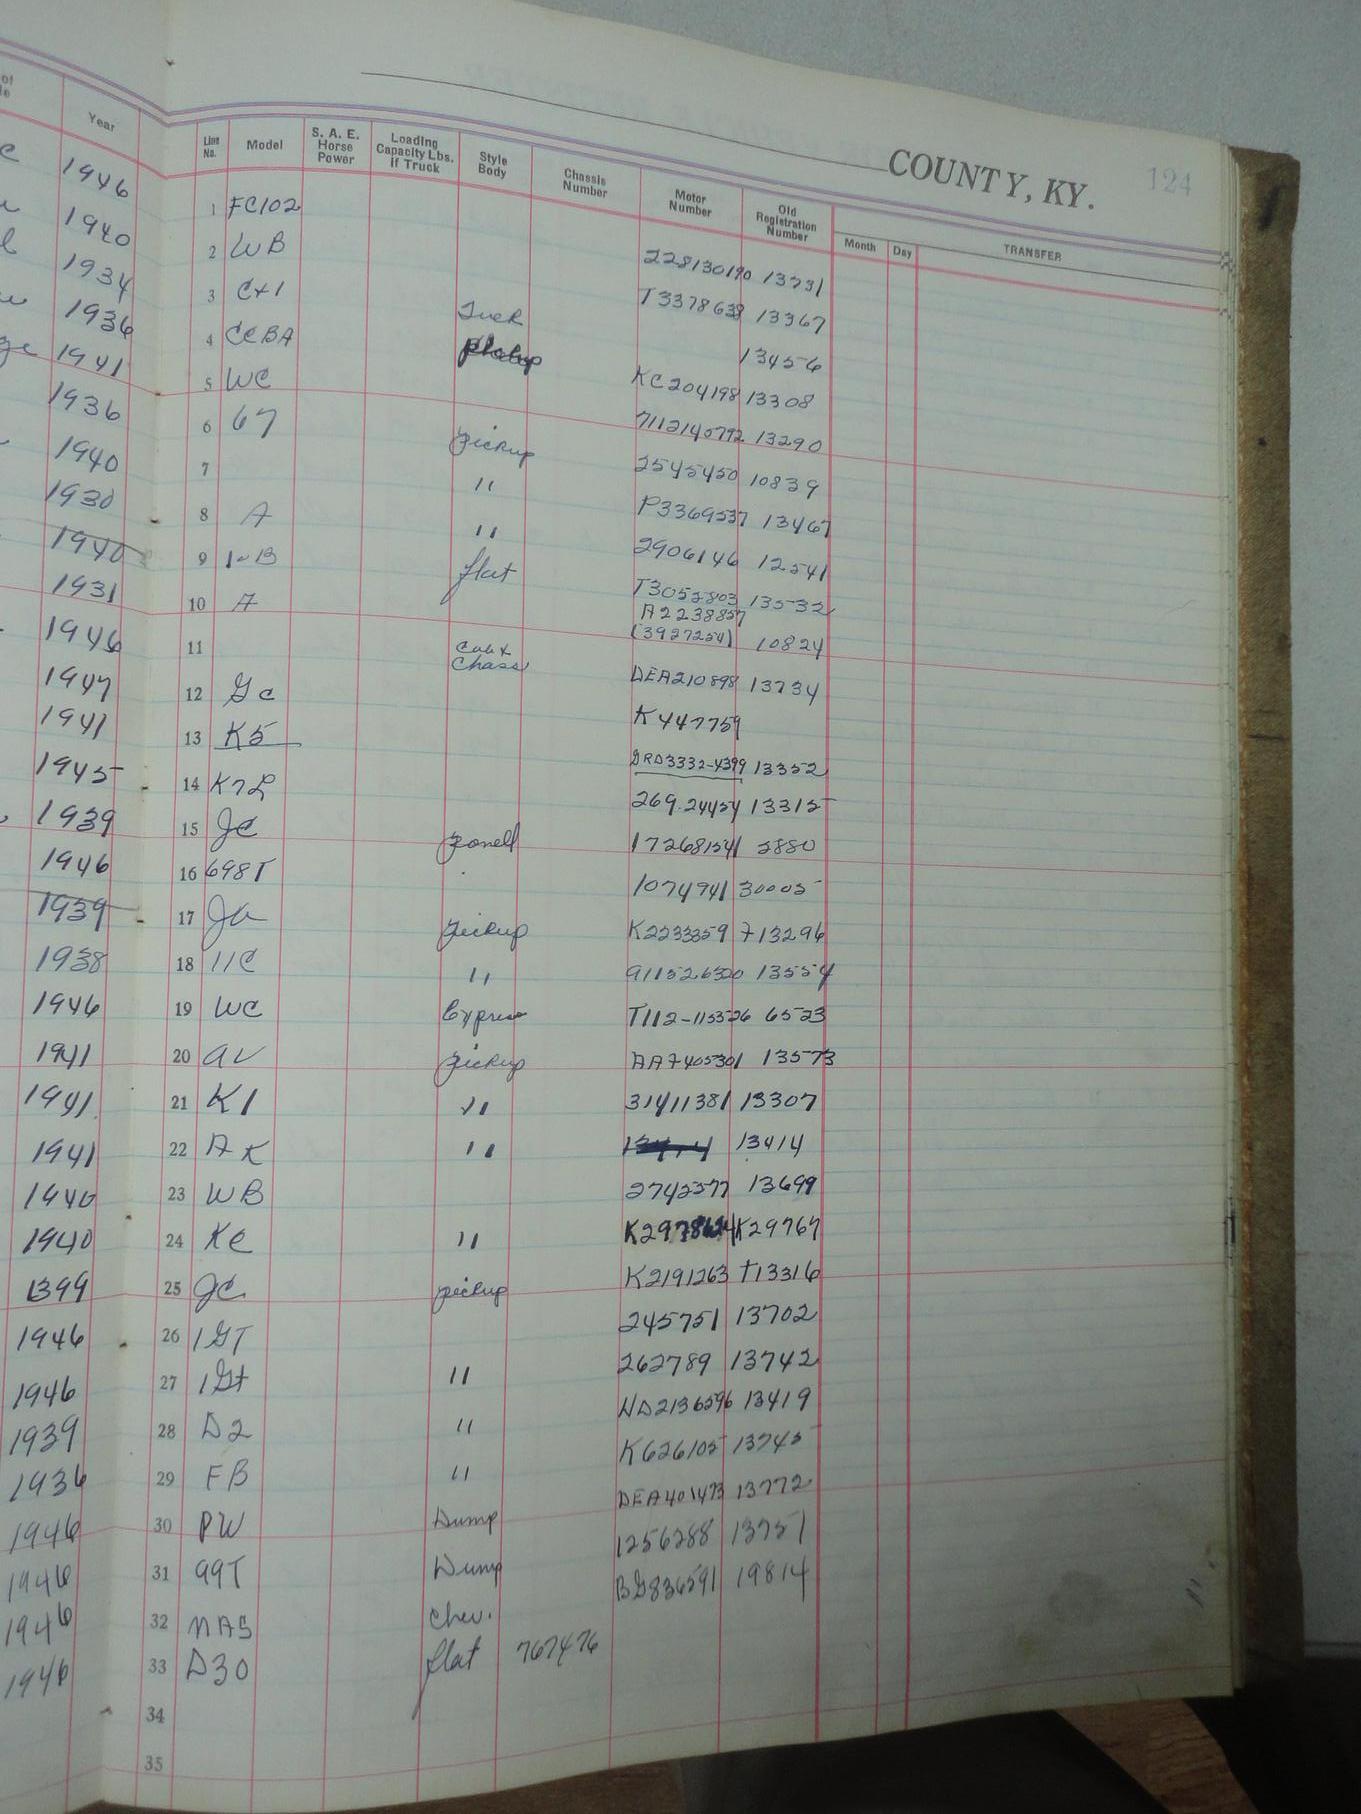 COUNTY, KY. 124
Year
Line No. Model S. A. E. Horse Power Loading Capacity Lbs. If Truck Style Body Chassis Number Motor Number Old Registration Number Month Day TRANSFER
1946 1 FC102 228130190 13731
1940 2 WB T3378638 13367
1934 3 13456
1936 4 CCBA KC204198 13308
1941 5 WC 13290
1936 6 67 pickup 2545450 10839
1940 7 " P3369537 13467
1930 8 A " 2906146 12541
1940 9 flat T3052803 13532
1931 10 A A2238857 (3927254) 10824
1946 11 Cab & Chass DEA210898 13734
1947 12 Gc K447759
1941 13 K5 GRD3332-4399 13352
1945 14 K7L 269.24454 13315
1939 15 JC panell 17268154 2880
1946 16 698T 1074941 30005
1939 17 pickup K2233359 713296
1938 18 11C " 13554
1946 19 WC Express T112-115326 6523
1941 20 pickup 13573
1941 21 K1 " 31411381 13307
1941 22 AK " 13414
1940 23 WB 2742377 13699
1940 24 KC " K29767
1399 25 JC pickup K2191263 T13316
1946 26 1GT 245751 13702
1946 27 1Gt " 262789 13742
1939 28 D2 " HD2136296 13419
1936 29 FB " K626105 13745
1946 30 PW Dump DEA401473 13772
1946 31 99T Dump 1256288 13751
1946 32 Chev. BG836591 19814
1946 33 D30 flat 767476
34
35